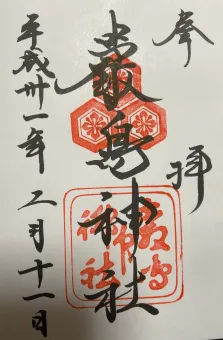 奉拝
嚴島神社
嚴島神社
平成卅一年二月十一日